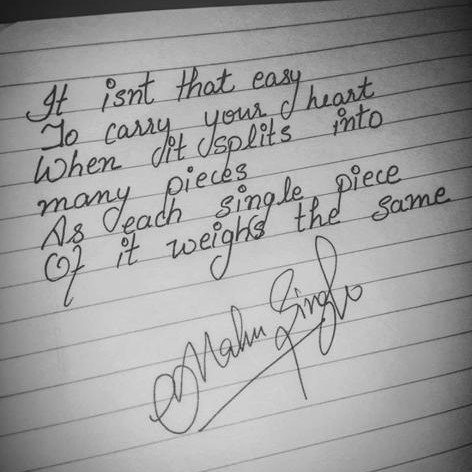 It isnt that easy
To carry your heart
When it splits into
many pieces
As each single piece
Of it weighs the same
Mahu Singh